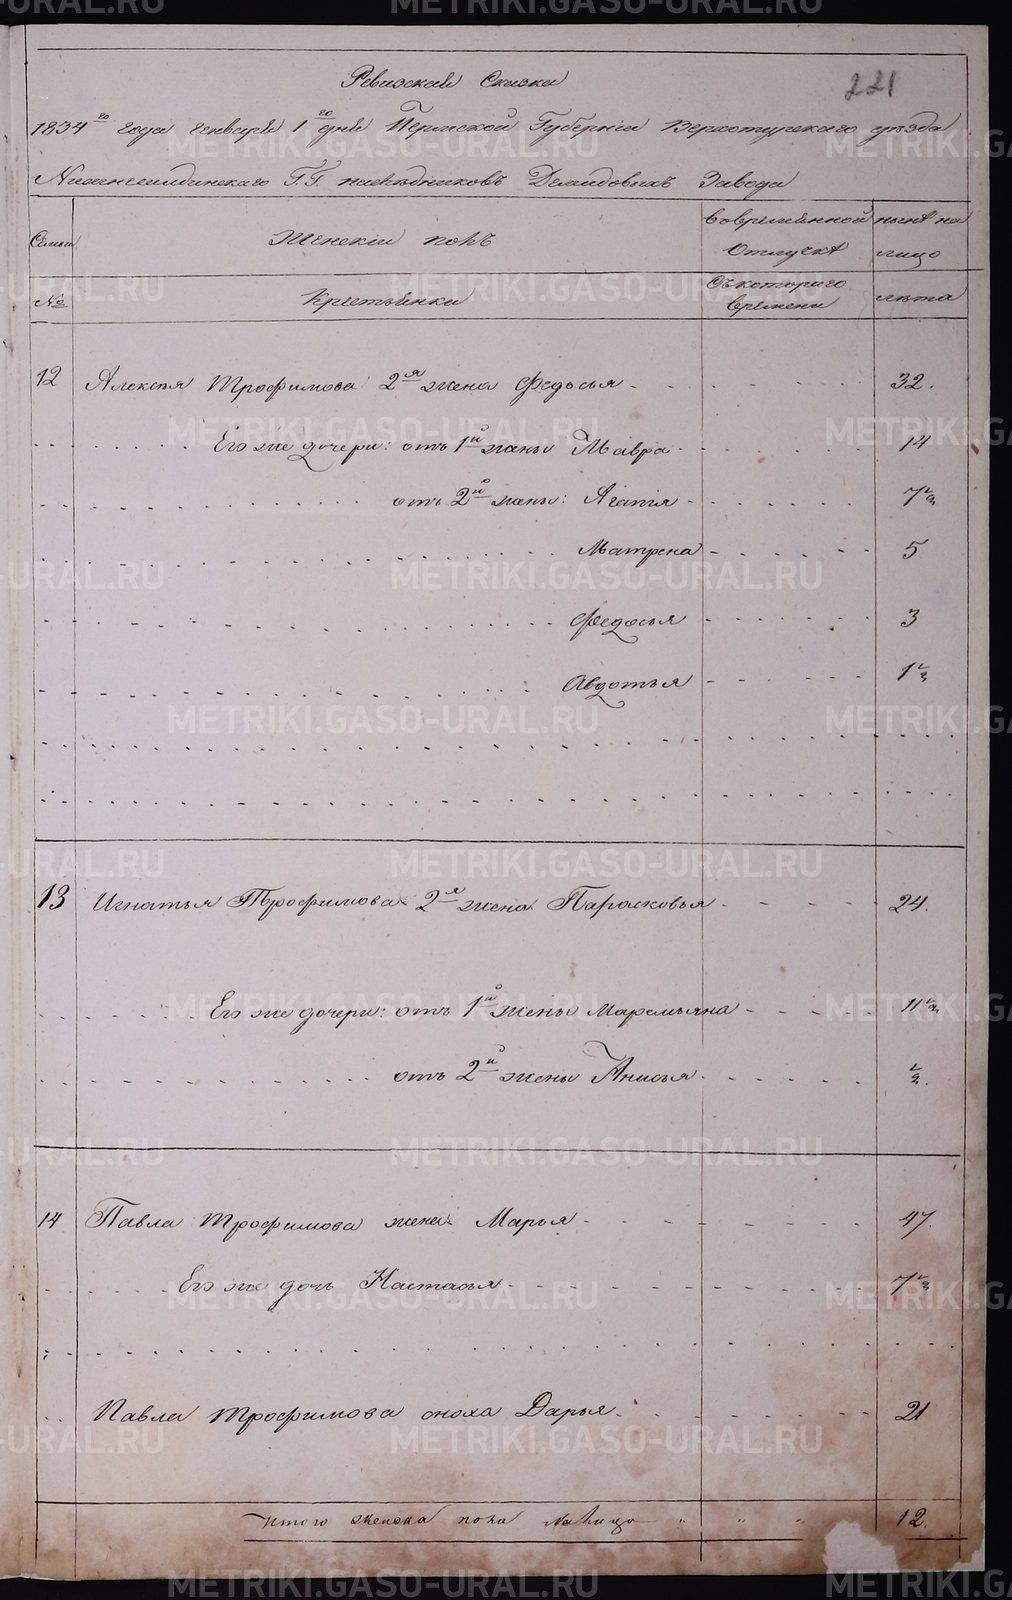 221
Ревизская Сказка
1834го года генваря 1го дня Пермской Губернiи Верхотурскаго уезда
Г.Г. наследниковъ Демидовыхъ Завода
Семьи
Женскiй полъ
Во временной отлучкѣ
ныне на лицо
№
Крестьянки
Съ котораго времени
лета
12 Алексея Трофимова 2я жена Федосья 32.
Его же дочери: отъ 1й жены Мавра 14
отъ 2й жены: Агапiя 7½
Матрена 5
Федосья 3
Авдотья 1½
13 Игнатья Трофимова 2я жена Парасковья 24.
Его же дочери: отъ 1й жены Маремьяна 11½
отъ 2й жены Анисья ½.
14 Павла Трофимова жена Марья 47.
Его же дочь Настасья 7½
Павла Трофимова сноха Дарья 21
Итого женска пола на лицо " " " 12.
METRIKI.GASO-URAL.RU